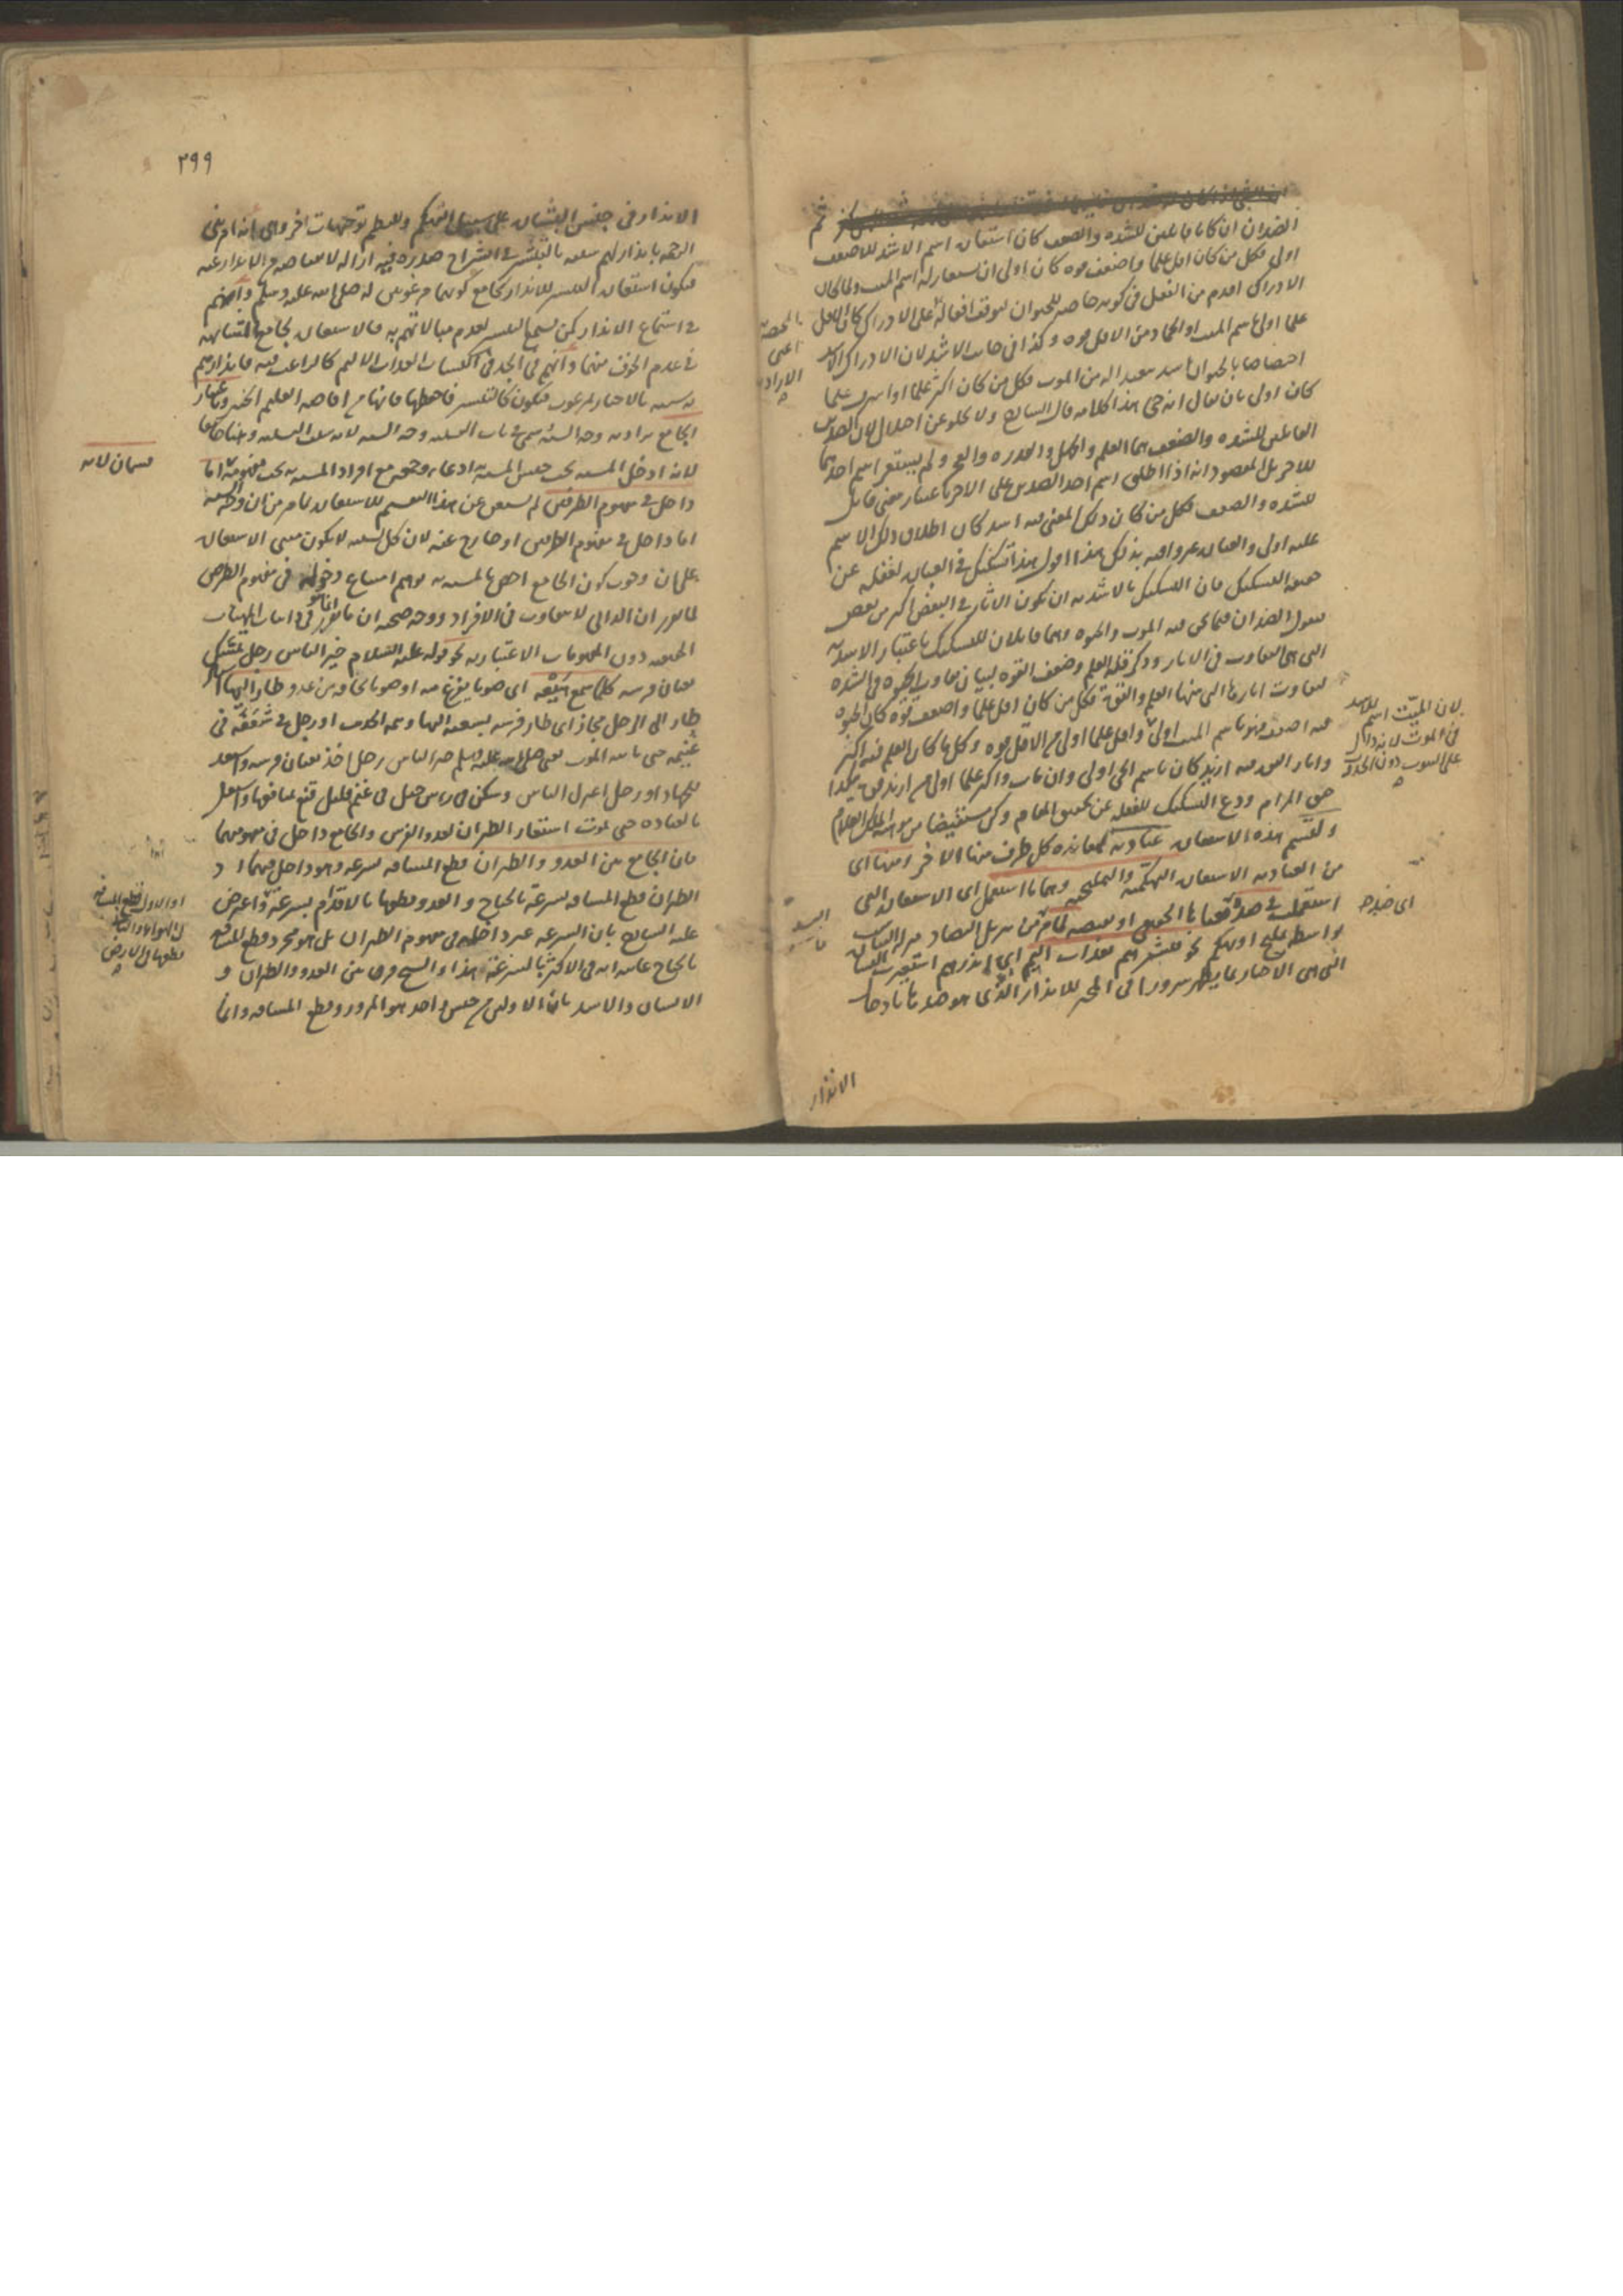 ثم
الضدان ان كانا قابلين للشده والضعف كان استعاره اسم الاشد للاضعف
اولى فكل من كان اقل علما واضعف قوه كان اولى ان يستعار له اسم الميت ولما كان
الادراك اقدم من الفعل في كونه خاصه للحيوان لتوقف افعاله على الادراك كان الاقل
علما اولى باسم الميت او الجماد من الاقل قوه وكذا في جانب الاشد لان الادراك اشد
اختصاصا بالحيوان اشد تبعيدا له من الموت فكل من كان اكثر علما او اشرف علما
كان اولى بان يقال انه حي هذا كلامه قال الشارح ولا يخلو عن اختلال لان الضدين
القابلين للشده والضعف هما العلم والجهل والقدره والعجز ولم يستعر اسم احدهما
للاخر بل المقصود انه اذا اطلق اسم احد الضدين على الاخر باعتبار معنى قابل
للشده والضعف فكل من كان ذلك المعنى فيه اشد كان اطلاق ذلك الاسم
عليه اولى والعباره غير وافيه بذلك هذا اقول هذا تشكيك في العباره لغفله عن
حقيقه التشكيك فان التشكيك بالاشديه ان يكون الاثار في البعض اكثر من بعض
فنقول الضدان فيما نحن فيه الموت والحيوه وهما قابلان للتشكيك باعتبار الاشديه
التي هي التفاوت في الاثار وذكر قله العلم وضعف القوه لبيان تفاوت الحيوه في الشده
لتفاوت اثارها التي منها العلم والقوه فكل من كان اقل علما واضعف قوه كان الحيوه
فيه اضعف فهو باسم الميت اولى واقل علما اولى من الاقل قوه وكل ما كان العلم فيه اكثر
واثار القوه فيه ازيد كان باسم الحي اولى وان غاب واكثر علما اولى من ازيد قوه هكذا
حقق المرام ودع التشكيك للغفله عن تحقيق المقام وكن مستفيضا من مواهب الملك العلام
ولتسم هذه الاستعاره عناديه لمعانده كل طرف منها الاخر ومنها اى
من العناديه الاستعاره التهكميه والتمليحيه وهما ما استعمل اى الاستعاره التي
استعملت في ضده معناها الحقيقي او نقيضه لما مر من تنزيل التضاد منزله التناسب
بواسطه تمليح او تهكم نحو فبشرهم بعذاب اليم اى انذرهم استعيرت البشاره
التي هي الاخبار بما يظهر سرورا في المخبر للانذار الذى هو ضدها بادخال
الانذار
بالحصه
اعنى
الاراده
لان الميت اسم للاشد
في الموت لانه دال
على الثبوت دون الحدوث
اى ضده
٢٩٩
الانذار في جنس البشاره على سبيل التهكم وللنظم توجيهات اخر وهى انه امر نبي
الرحمه بانذارهم يتعبه بالتبشير في انشراح صدره فيه
فيكون استعاره التبشير للانذار بجامع كونهما مرغوبين له صلى الله عليه وسلم وانهم
في استماع الانذار كمن يسمع التبشير لعدم مبالاتهم به فالاستعاره بجامع التشابه
في عدم الخوف منهما وانهم في الجد في اكتساب العذاب الاليم كالراغب فيه فانذارهم
به يشبه بالاخبار لمرغوب فيكون كالتبشير فاحفظها فانها من افاضه العليم الخبير وباعتبار
الجامع يراد به وجه الشبه سمى في باب التشبيه وجه الشبه لانه سبب التشبيه وههنا جامعا
لانه ادخل المشبه تحت جنس المشبه به ادعاء وجمعه مع افراد المشبه به تحت مفهومه اما
داخل في مفهوم الطرفين لم يستغن عن هذا التقسيم للاستعاره بما مر من ان وجه الشبه
اما داخل في مفهوم الطرفين او خارج عنه لان كل تشبيه لا يكون مبنى الاستعاره
على ان وجوب كون الجامع اخص بالمشبه به يوهم امتناع دخوله في مفهوم الطرفين
لما تقرر ان الذاتي لا يتفاوت في الافراد ووجه صحته ان ما تقرر انما هو في الماهيات
الحقيقيه دون المفهومات الاعتباريه نحو قوله عليه السلام خير الناس رجل يمسك
بعنان فرسه كلما سمع هيعه اى صوتا يفزع منه او صوتا يخافه من عدو طار اليها اسند
طار الى الرجل مجاز اى طار فرسه بسعيه اليها وتتمه الحديث او رجل في شعفه في
غنيمه حتى ياتيه الموت يعنى صلى الله عليه وسلم خير الناس رجل اخذ بعنان فرسه واستعد
للجهاد او رجل اعتزل الناس وسكن في راس جبل في غنم قليل قنع بمنافعها واشتغل
بالعباده حتى يموت استعار الطيران لعدو الفرس والجامع داخل في مفهومهما
فان الجامع بين العدو والطيران قطع المسافه بسرعه وهو داخل فيهما اذ
الطيران قطع المسافه بسرعه بالجناح والعدو قطعها بالاقدام بسرعه واعترض
عليه الشارح بان السرعه غير داخله في مفهوم الطيران بل هو مجرد قطع المسافه
بالجناح غايته انه في الاكثر بالسرعه هذا والشيخ فرق بين العدو والطيران و
الانسان والاسد بان الاولين من جنس واحد هو المرور وقطع المسافه وانما
قسمان لانه
او الاول قطع المسافه
في الهواء والثاني
قطعها في الارض